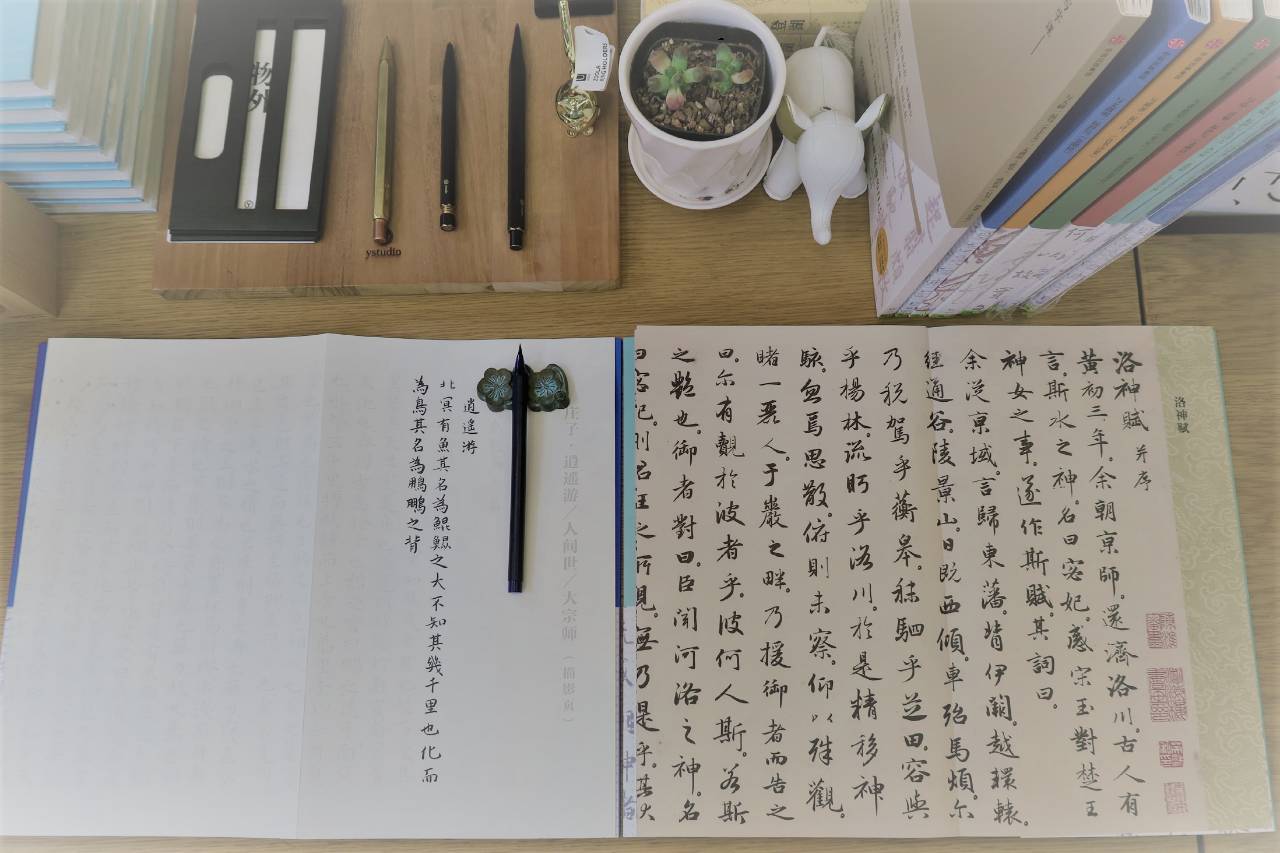 物外
ystudio
ZOOLA
RINGHOLDERS
洛神賦
洛神賦 并序
黃初三年。余朝京師。還濟洛川。古人有
言。斯水之神。名曰宓妃。感宋玉對楚王
神女之事。遂作斯賦。其詞曰。
余從京域。言歸東藩。背伊闕。越轘轅。
經通谷。陵景山。日既西傾。車殆馬煩。尔
乃税駕乎蘅皋。秣駟乎芝田。容與
乎楊林。流眄乎洛川。於是精移神
駭。忽焉思散。俯則未察。仰以殊觀。
睹一麗人。于巖之畔。乃援御者而告之
曰。尔有覿於彼者乎。彼何人斯。若斯
之艷也。御者對曰。臣聞河洛之神。名
曰宓妃。則君王之所見。無乃是乎。其狀
庄子·逍遥游／人间世／大宗师（描影页）
逍遙游
北冥有魚其名為鯤鯤之大不知其幾千里也化而
為鳥其名為鵬鵬之背